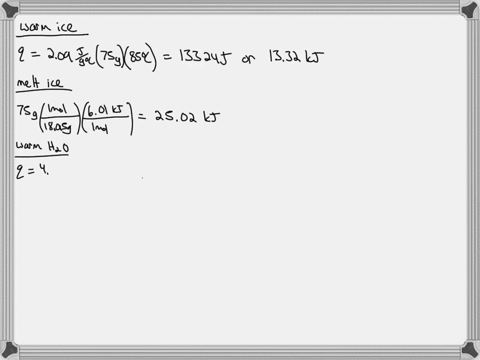 warm ice
q = 2.09 J/g°C (75g)(85°C) = 13324J or 13.32 kJ
melt ice
75g (1mol/18.05g)(6.01 kJ/1mol) = 25.02 kJ
warm H₂O
q = 4.